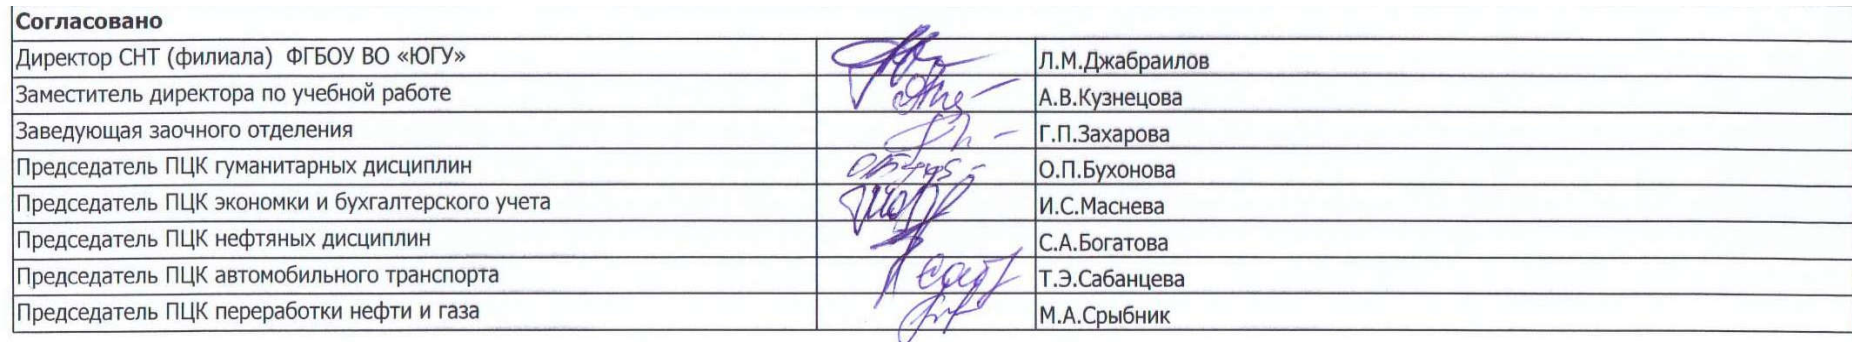 Согласовано
Директор СНТ (филиала) ФГБОУ ВО «ЮГУ» Л.М.Джабраилов
Заместитель директора по учебной работе А.В.Кузнецова
Заведующая заочного отделения Г.П.Захарова
Председатель ПЦК гуманитарных дисциплин О.П.Бухонова
Председатель ПЦК экономки и бухгалтерского учета И.С.Маснева
Председатель ПЦК нефтяных дисциплин С.А.Богатова
Председатель ПЦК автомобильного транспорта Т.Э.Сабанцева
Председатель ПЦК переработки нефти и газа М.А.Срыбник